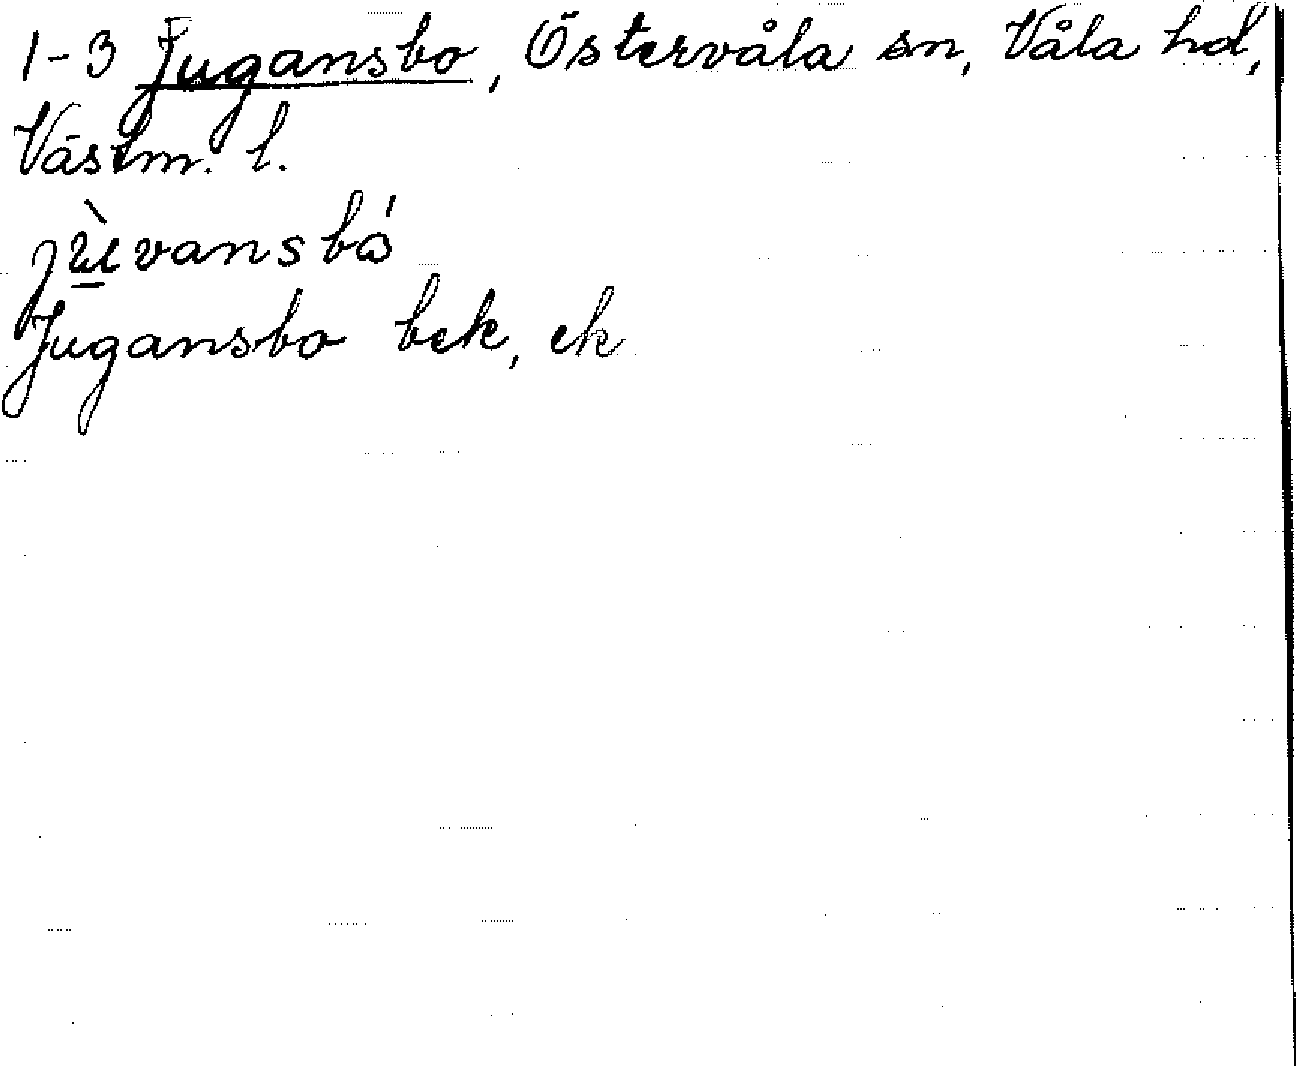 1-3 Jugansbo, Östervåla sn, Våla hd,
Västm. l.
jù̱vansbǻ
Jugansbo bek, ek